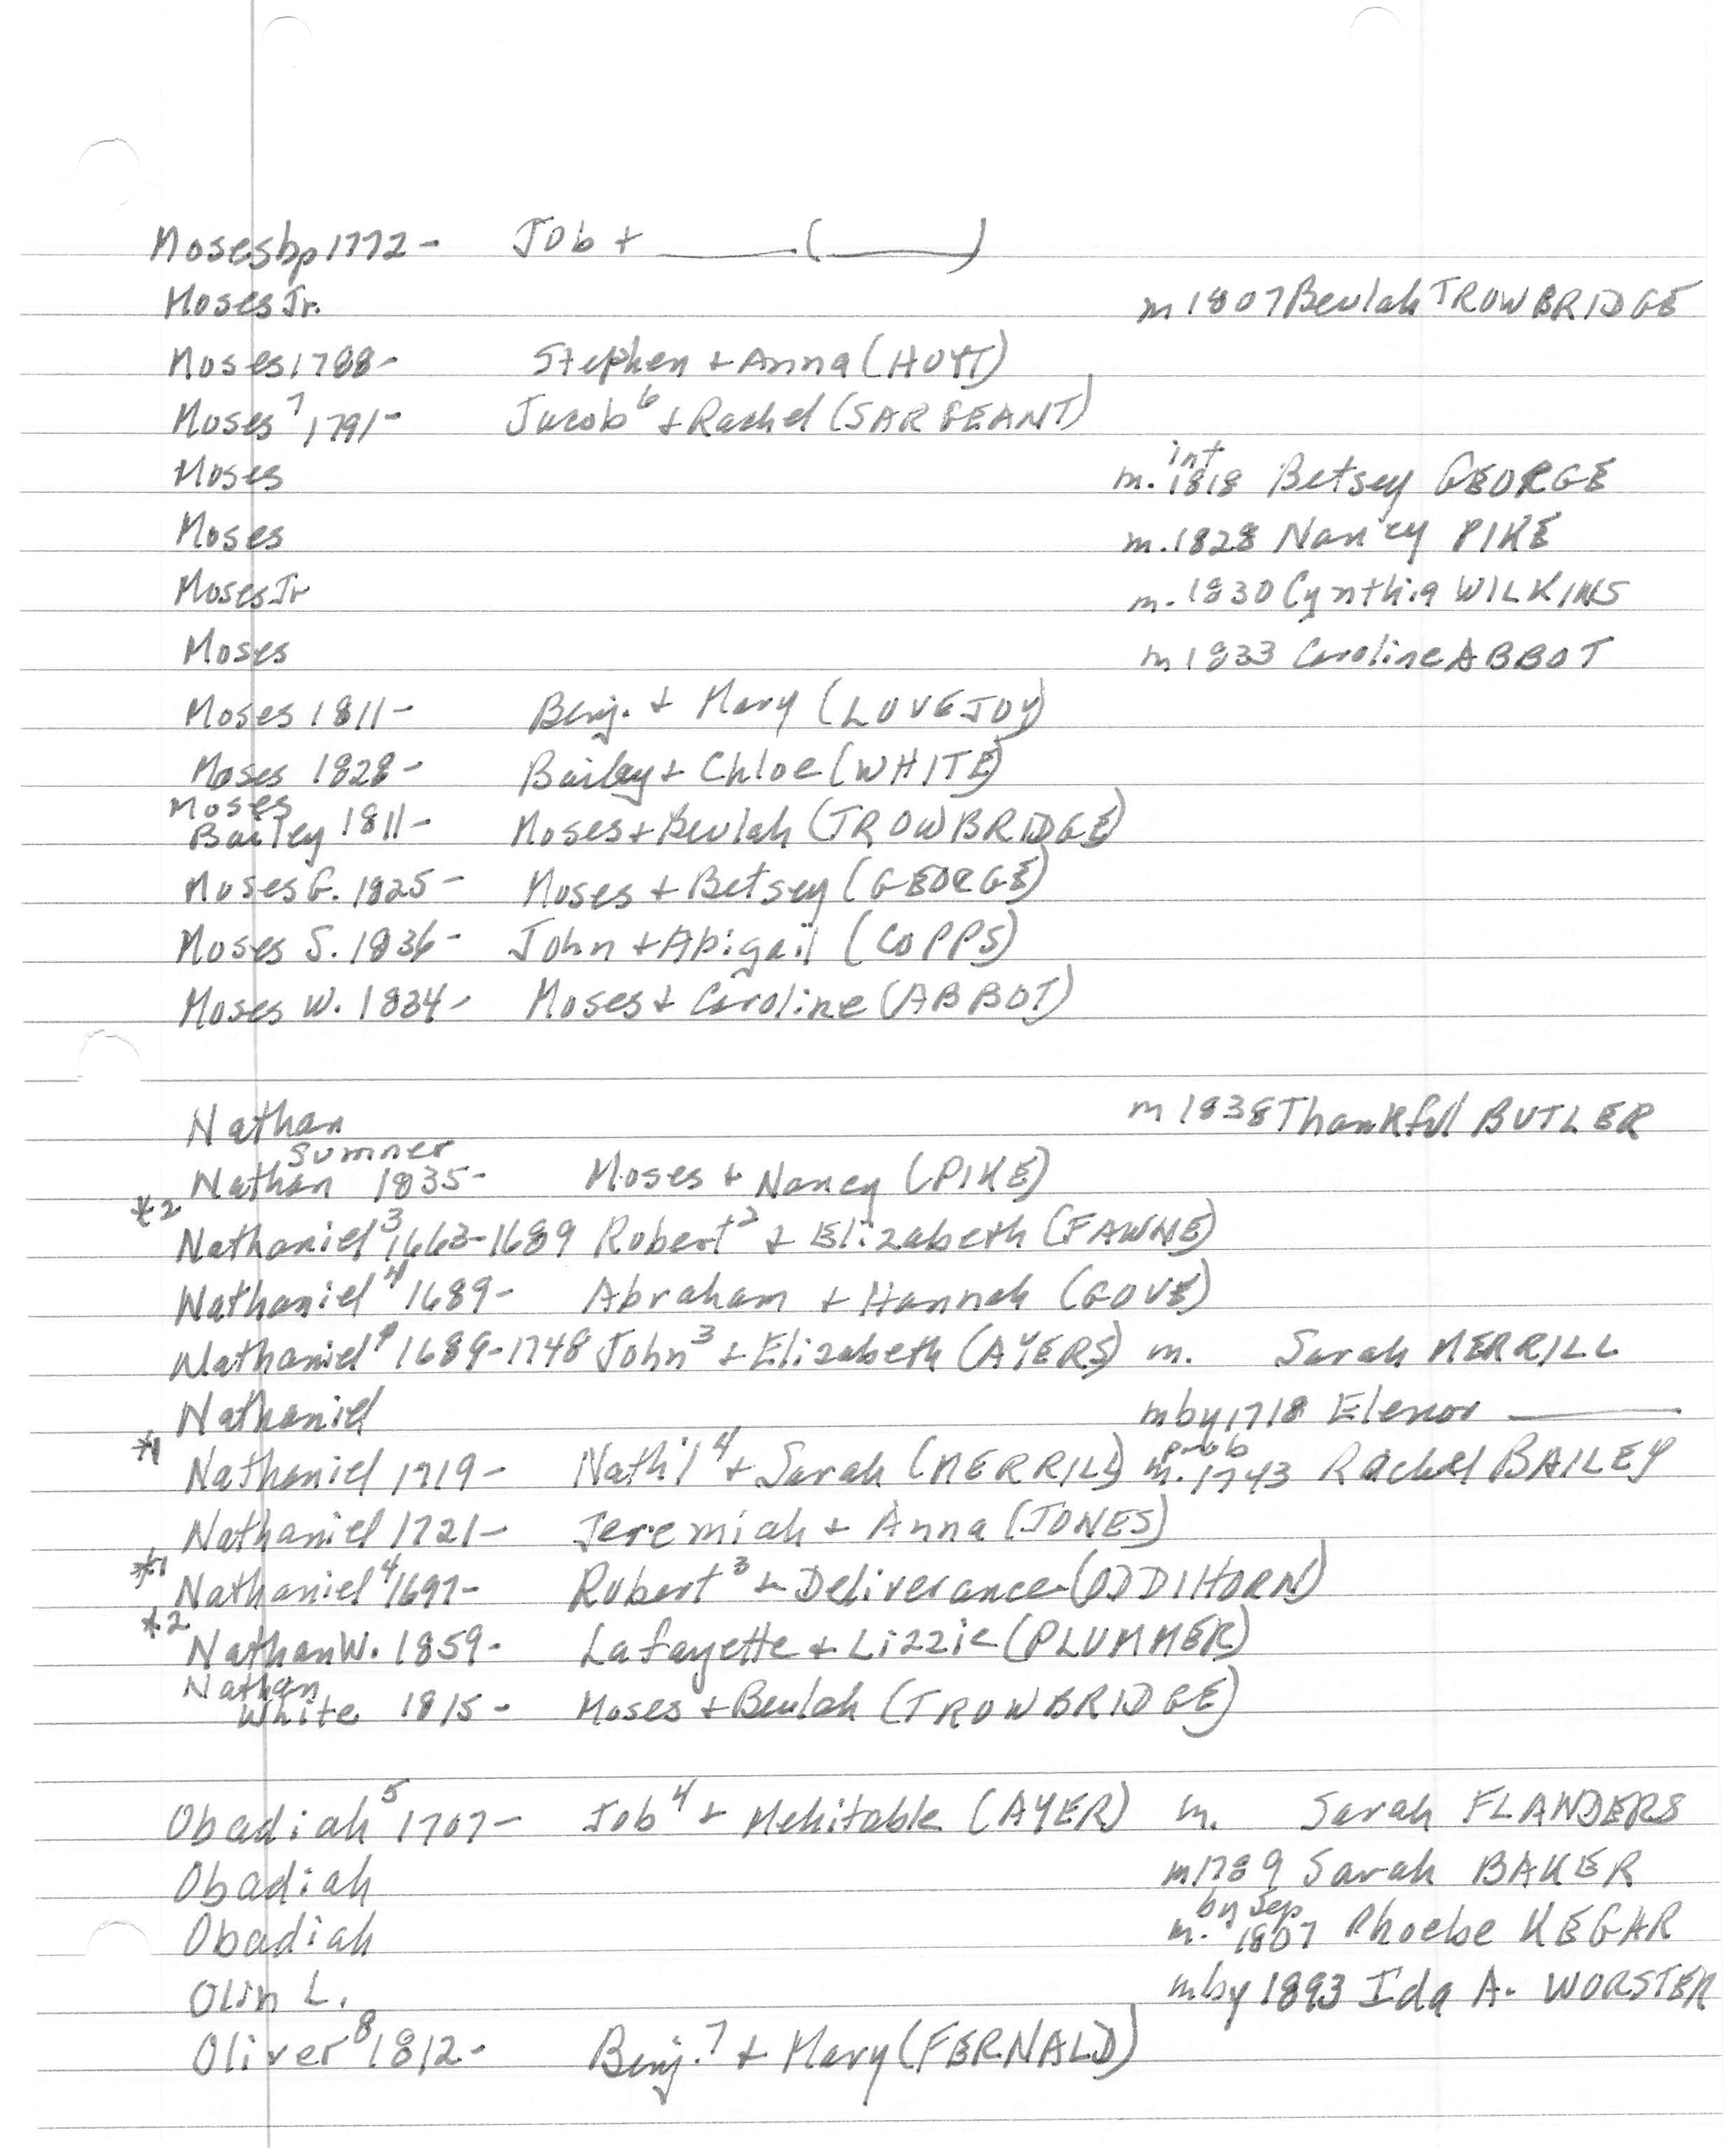 Moses bp 1772- Job + ____ (____)
Moses Jr. m 1807 Beulah TROWBRIDGE
Moses 1788- Stephen + Anna (HOYT)
Moses⁷ 1791- Jacob⁶ + Rachel (SARGEANT)
Moses m. int 1818 Betsey GEORGE
Moses m. 1828 Nancy PIKE
Moses Jr m. 1830 Cynthia WILKINS
Moses m 1833 Caroline ABBOT
Moses 1811- Benj. + Mary (LOVEJOY)
Moses 1828- Bailey + Chloe (WHITE)
Moses Bailey 1811- Moses + Beulah (TROWBRIDGE)
Moses G. 1825- Moses + Betsey (GEORGE)
Moses S. 1836- John + Abigail (COPPS)
Moses W. 1834- Moses + Caroline (ABBOT)
Nathan m 1838 Thankful BUTLER
Nathan Sumner 1835- Moses + Nancy (PIKE)
*2 Nathaniel³ 1663-1689 Robert² + Elizabeth (FAWNE)
Nathaniel⁴ 1689- Abraham + Hannah (GOVE)
Nathaniel⁴ 1689-1748 John³ + Elizabeth (AYERS) m. Sarah MERRILL
Nathaniel m by 1718 Elenor ____
*1 Nathaniel 1719- Nath'l⁴ + Sarah (MERRILL) m. prob 1743 Rachel BAILEY
Nathaniel 1721- Jeremiah + Anna (JONES)
*1 Nathaniel⁴ 1697- Robert³ + Deliverance (ODDIHORN)
*2 Nathan W. 1859- Lafayette + Lizzie (PLUMMER)
Nathan White 1815- Moses + Beulah (TROWBRIDGE)
Obadiah⁵ 1707- Job⁴ + Mehitable (AYER) m. Sarah FLANDERS
Obadiah m 1789 Sarah BAKER
Obadiah m. by Sep 1807 Phoebe KEGAR
Olin L. m by 1893 Ida A. WORSTER
Oliver⁸ 1812- Benj.⁷ + Mary (FERNALD)